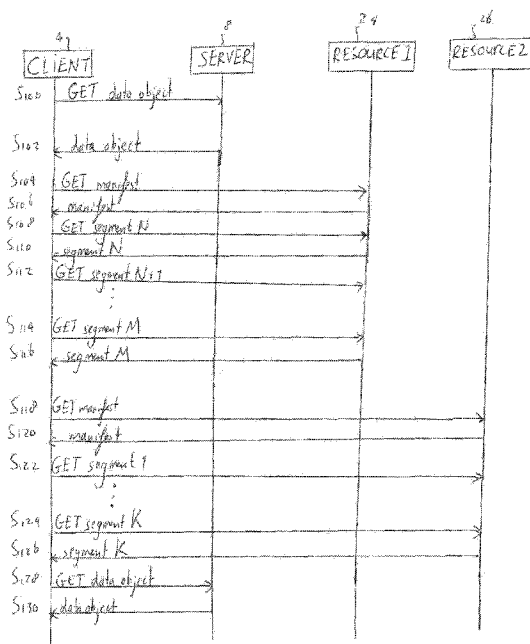 4 8 24 26
CLIENT SERVER RESOURCE 1 RESOURCE 2
S100 GET data object
S102 data object
S104 GET manifest
S106 manifest
S108 GET segment N
S110 segment N
S112 GET segment N+1
S114 GET segment M
S116 segment M
S118 GET manifest
S120 manifest
S122 GET segment 1
S124 GET segment K
S126 segment K
S128 GET data object
S130 data object